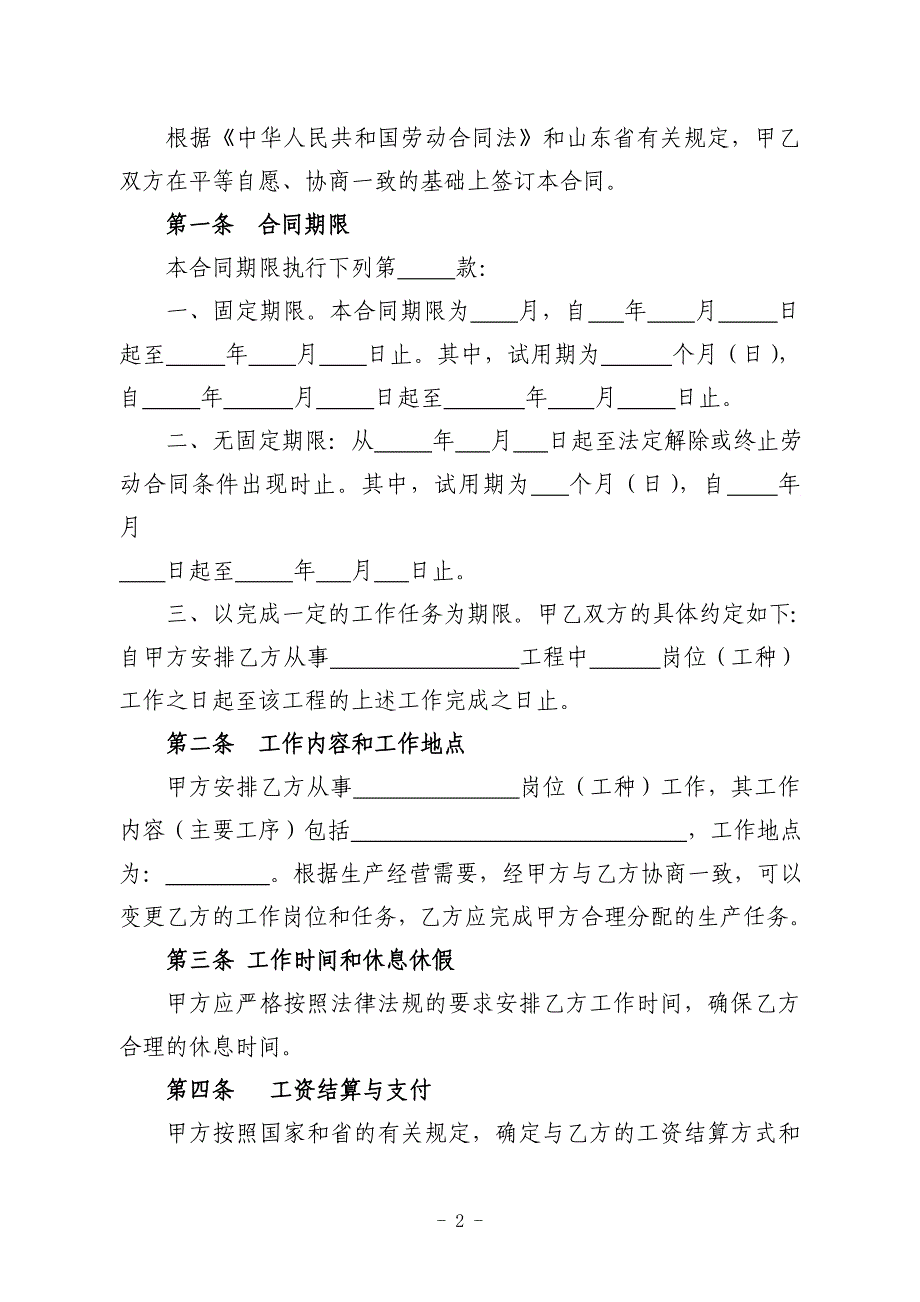 根据《中华人民共和国劳动合同法》和山东省有关规定，甲乙
双方在平等自愿、协商一致的基础上签订本合同。
第一条　合同期限
本合同期限执行下列第_____款：
一、固定期限。本合同期限为____月，自___年____月_____日
起至_____年____月____日止。其中，试用期为______个月（日），
自_____年______月_____日起至_______年____月_____日止。
二、无固定期限：从_____年___月___日起至法定解除或终止劳
动合同条件出现时止。其中，试用期为___个月（日），自____年
月
____日起至_____年___月___日止。
三、以完成一定的工作任务为期限。甲乙双方的具体约定如下：
自甲方安排乙方从事________________工程中______岗位（工种）
工作之日起至该工程的上述工作完成之日止。
第二条　工作内容和工作地点
甲方安排乙方从事______________岗位（工种）工作，其工作
内容（主要工序）包括_____________________________，工作地点
为：_________。根据生产经营需要，经甲方与乙方协商一致，可以
变更乙方的工作岗位和任务，乙方应完成甲方合理分配的生产任务。
第三条 工作时间和休息休假
甲方应严格按照法律法规的要求安排乙方工作时间，确保乙方
合理的休息时间。
第四条　 工资结算与支付
甲方按照国家和省的有关规定，确定与乙方的工资结算方式和
- 2 -